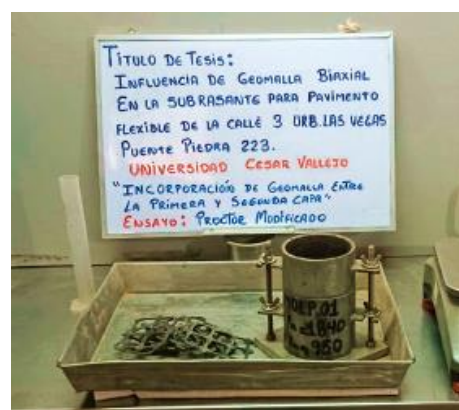 TÍTULO DE TESIS:
INFLUENCIA DE GEOMALLA BIAXIAL
EN LA SUBRASANTE PARA PAVIMENTO
FLEXIBLE DE LA CALLE 3 URB. LAS VEGAS
PUENTE PIEDRA 223.
UNIVERSIDAD CESAR VALLEJO
"INCORPORACIÓN DE GEOMALLA ENTRE
LA PRIMERA Y SEGUNDA CAPA"
ENSAYO: PROCTOR MODIFICADO